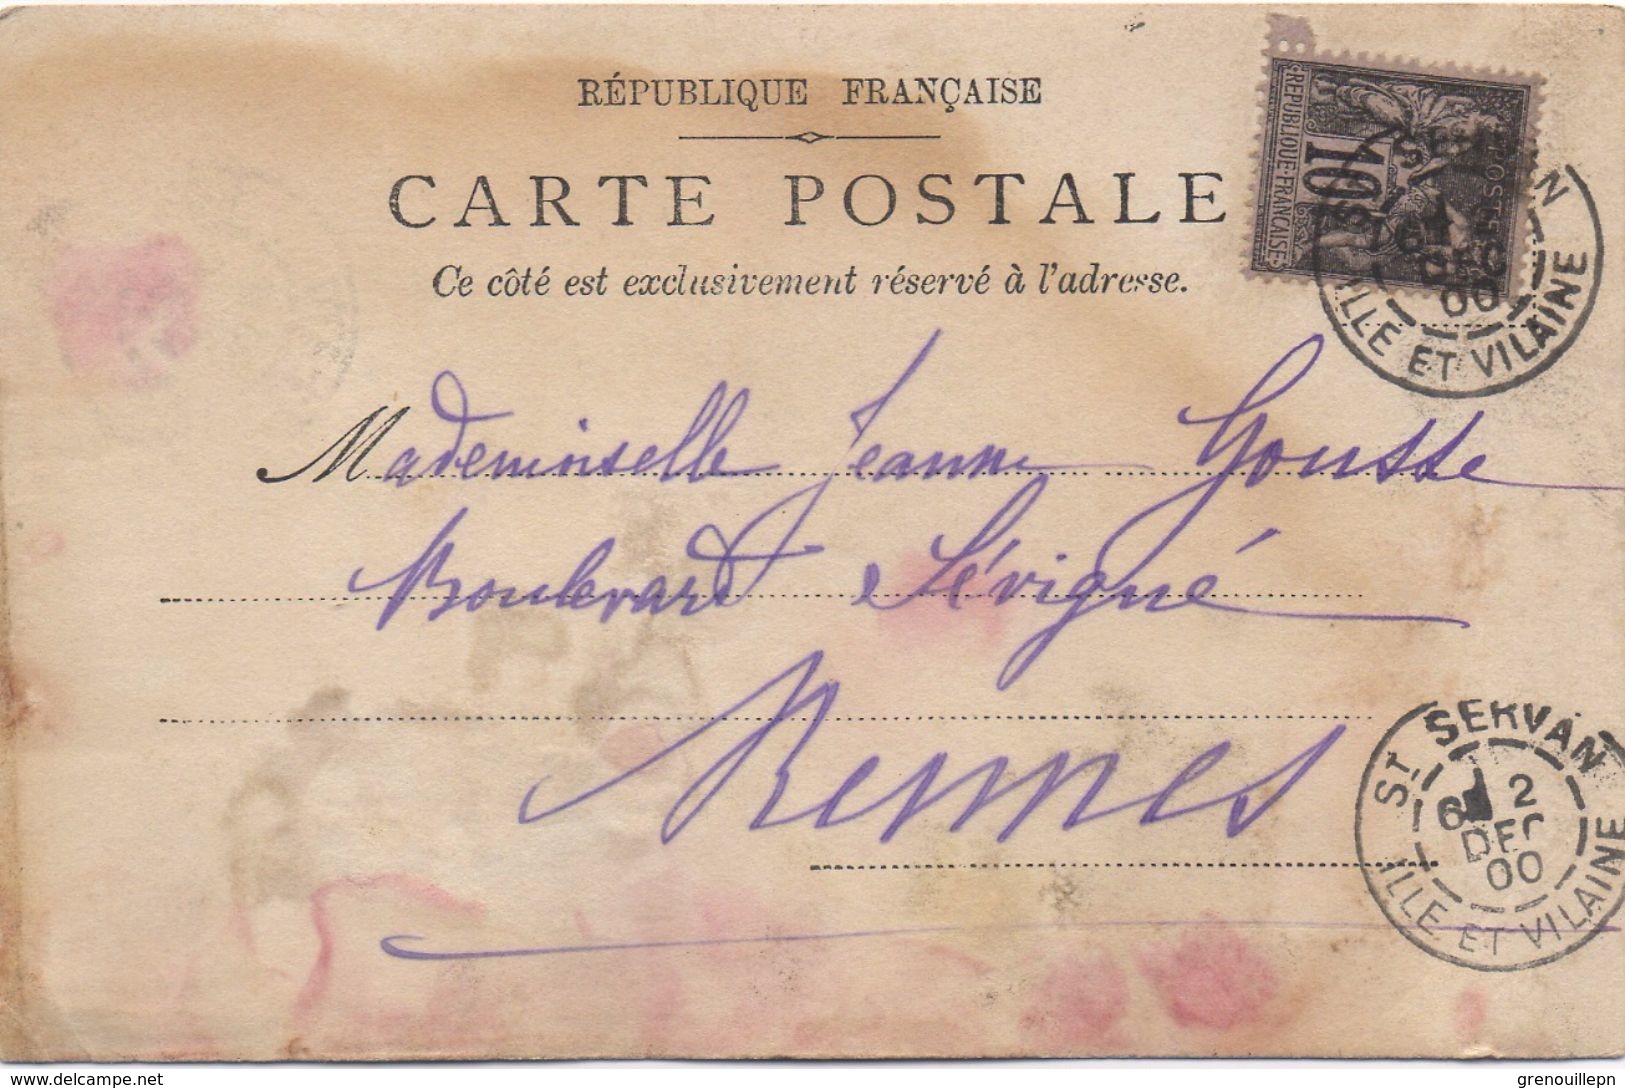 RÉPUBLIQUE FRANÇAISE
CARTE POSTALE
Ce côté est exclusivement réservé à l'adresse.
RÉPUBLIQUE·FRANÇAISE
10
Mademoiselle Jeanne Gousse
Boulevard Sévigné
Rennes
SERVAN
DEC
00
ILLE ET VILAINE
ST SERVAN
6 2
DEC
00
ILLE ET VILAINE
www.delcampe.net
grenouillepn